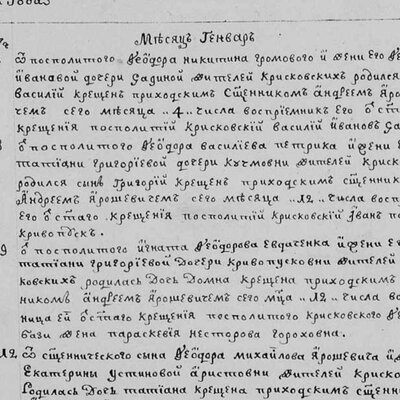 Мѣсяцъ Генварь
Ѿ посполитого Ѳеодора никитина громового и жени его Ѳе
Ивановой дочери жителей Крисковскихъ родился
василій крещенъ приходскимъ Сщенникомъ Андреем Яро
чемъ сего мѣсяца "4" числа воспріемникъ его ѿ с
крещенія посполитій Крисковскій василій ивановъ
ѿ посполитого Ѳеодора василіева петрика и жени е
татіани григоріевой дочери кучмовни жителей криск
родился синъ Григорій крещенъ приходскимъ сщенник
Андреемъ Ярошевичемъ сего мѣсяца "12" числа восп
его ѿ стаго крещенія посполитій крисковскій Іванъ по
кривопускъ.
9 ѿ посполитого Игната Ѳеодорова Евдиченка и жени е
татіани григоріевой дочери кривопусковни жителей
ковскихъ родилась Дочь Домна крещена приходским
никомъ Андреемъ Ярошевичемъ сего мца "12" числа во
ница ея ѿ стаго крещенія посполитого крисковского Ѳ
жена параскевія несторова гороховна.
12 Ѿ сщенническаго сына Ѳеодора михайлова Ярошевича и
Екатерины Устиновой Аристовни жителей криско
родилась Дочь татіана крещена приходскимъ сщен